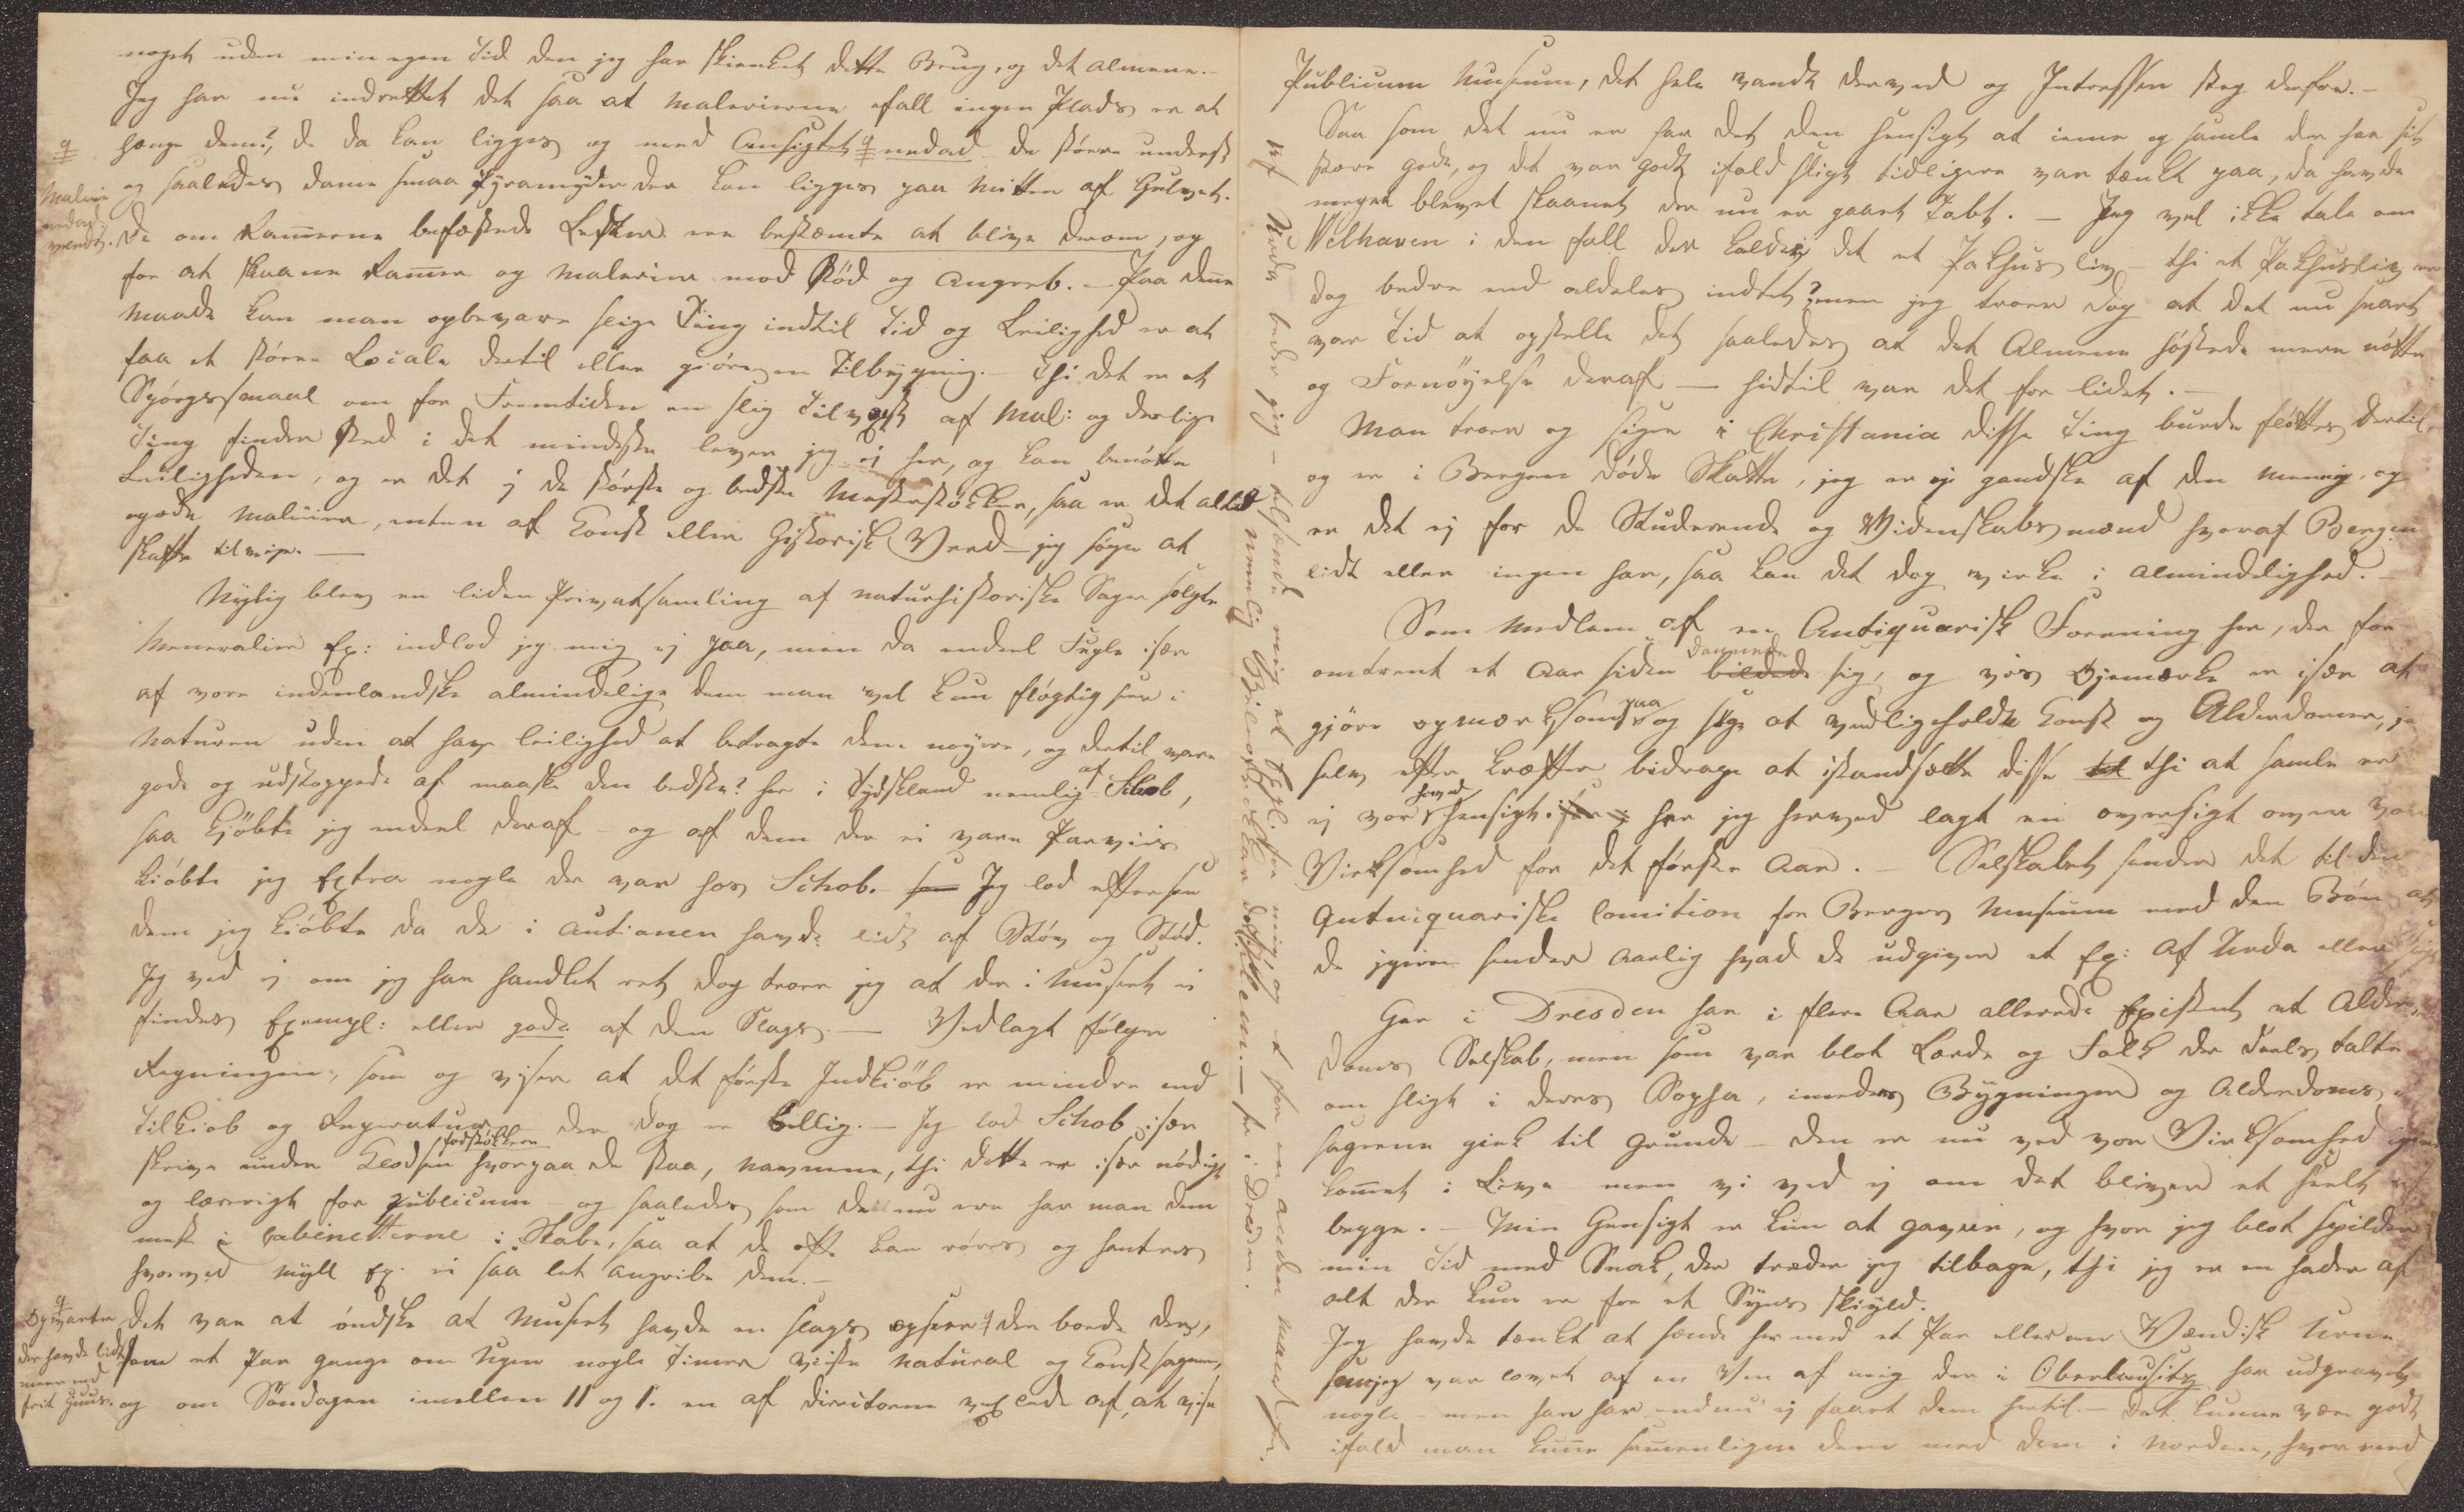 noget uden min egen Tid den jeg har skienket dette Brug, og det almene.
Jeg har nu indrettet det saa at Malerierne ifall ingen Plads er at
hænge dem?, de da kan ligges og med Ansigtet nedad de större underst
og saaledes danne smaa Pyramyder der kan ligges paa Mitten af Gulvet.
Malerie
nedad
vendt.
De om Ramerne befæstede Lister ere bestemte at blive derom, og
for at skaane Ramer og Malerier mod Stöd og Angreb. - Paa denne
Maade kan man opbevare slige Ting indtil Tid og Leilighed er at
faa et större Locale dertil eller giöre en Tilbygning. - Thi det er et
Spörgsmaal om for Fremtiden en slig Tilvext af Mal: og deslige
Ting finder Sted i det mindste lever jeg ej her, og kan benötte
Leiligheden, og er det ej de störste og bedste Mesterstökker, saa er det altid
gode Malerier, enten af Konst eller Historisk Værd - jeg söger at
skaffe tilveje. -
Nylig blev en liden Privatsamling af naturhistoriske Sager solgte
Meneralier Ex: indlod jeg mig ej paa, men da endeel Fugle især
af vore indenlandske almindelige dem man vel kun flögtig seer i
Naturen uden at have leilighed at betragte dem nöyere, og dertil vare
gode og udstoppede af maaske den bedste? her i Tydskland nemlig af Schob,
saa kjöbte jeg endeel deraf - og af dem der ei vare Parviis
kiöbte jeg Extra nogle der var hos Schob. Jeg lod efterse
dem jeg kiöbte da de i Auctionen havde lidt af Stöv og Stöd.
Jeg ved ej om jeg har handlet ret dog troer jeg at der i Museet ei
findes Exempl: eller gode af den Slags. - Vedlagt fölger
Regningen, som og viser at det förste Indkiöb er mindre end
Tilkiob og Reperatur der dog er billig. - Jeg lod Schob især
skrive under Klodsen fodstökkerne hvorpaa de staa, Navnene, thi dette er især nödigt
og lærerigt for publicum - og saaledes som de nu ere har man dem
mest i Cabinetterne i Skabe, saa at de ofte kan röres og hantres
hvorved Mýll Ex. ei saa let angribe dem. -
Opvarter
der havde lidt
mer end
frit Huus.
Det var at öndske at Museet havde en slags opseer der boede der,
som et Par gange om Ugen nogle Timer viiste natural og Konstsagerne,
og om Söndagen imellem 11 og 1. en af Directorerne vexlede af, at vise
Publicum Museum, det hele vandt derved og Intressen steg derfor. -
Saa som det nu er har det den Hensigt at ieme og samle der har sit
store gode, og det var godt ifald sligt tidligere var tænkt paa, da havde
meget blevet skaanet der nu er gaaet tabt. - Jeg vil ikke tale om
Welhaven i den fall der kalder det et Pakhus liv - thi et Pakhusliv er
dog bedre end aldeles indtet? men jeg troer dog at det nu snart
var Tid at opstelle det saaledes at det Almene höstede mere nötte
og Fornöyelse deraf - hidtil var det for lidet. -
Man troer og siger i Christania disse Ting burde flöttes dertil
og er i Bergen döde Skatte, jeg er ej gandske af den Mening, og
er det ej for de Studerende og Videnskabsmænd hvoraf Bergen
lidt eller ingen har, saa kan det dog virke i Almindelighed. -
Som Medlem af en Antiquarisk Forening her, der for
omtrent et Aar siden dannede sig, og vores Öjemærke er især at
gjöre opmærksom paa og söge at vedligeholde Konst og Alderdomer, ja
selv efter kræfter bidrage at istandsætte disse thi at samle er
ej vor hoved Hensigt. her jeg herved lagt en oversigt over vor
Virksomhed for det förste Aar. - Selskabet sender det til den
Antuiquariske Comition for Bergens Museum med den Bön at
de igien sender aarlig hvad de udgiver et Ex: af Urda eller
Her i Dresden har i flere Aar allerede Existeret et Alder,
doms Selskab, men som var blot Lærde og Folk der deels talte
om sligt i deres Sopha, imedens Bygninger og Alderdoms,
sagerne gik til grunde - den er nu ved vor Virksomhed igien
komet i Live men vi ved ej om det bliver et Heelt af
begge. - Min Hensigt er kun at gavne, og hvor jeg blot spilder
min Tid med Snak, der træder jeg tilbage, thi jeg er en hader af
alt der kun er for et Syns skyld.
Jeg havde tænkt at sende hermed et Par eller een Vendisk Urne
som jeg var lovet af en Ven af mig der i Oberlausitz har udgravet
nogle - men han har endnu ej faaet dem hertil. - Det kunne være godt
ifald man kunne sammenligne dem med dem i Norden, hvormed
Af Urda beder jeg tilsende mig et Expl. for mig og et for en anden Mand her.
nemlig Billedhugger - her i Dresden.